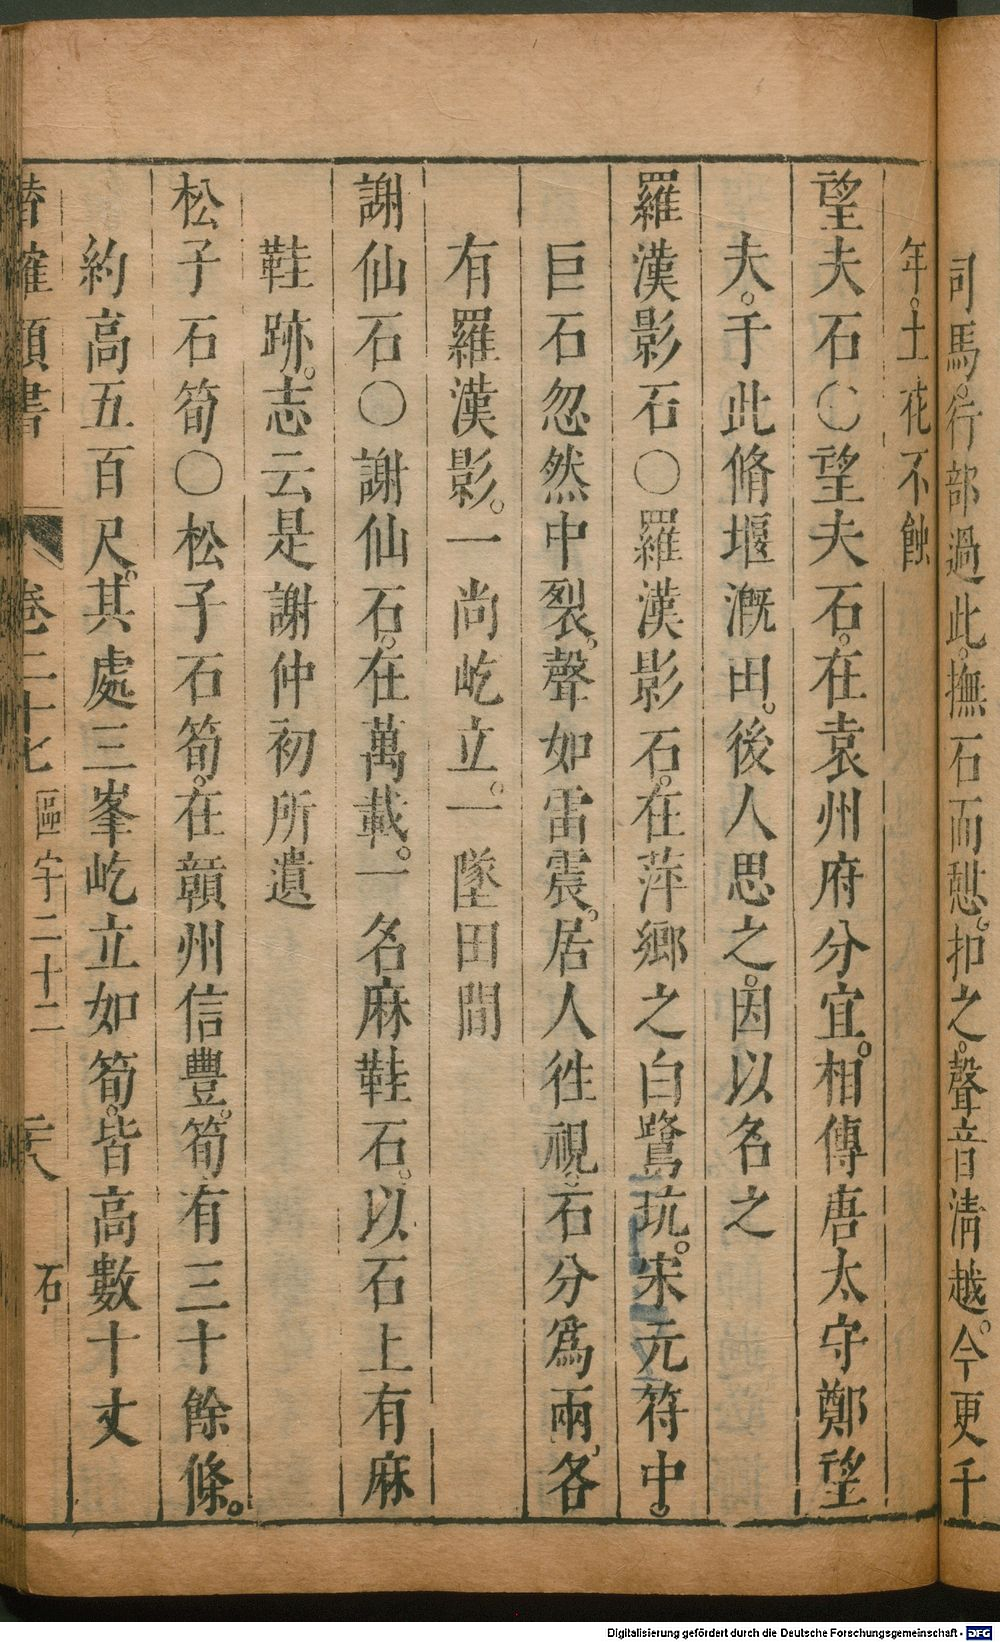 司馬。行部過此。撫石而憇。扣之。聲音淸越。今更千
年。土花不蝕
望夫石〇望夫石。在袁州府分宜。相傳唐太守鄭望
夫。于此脩堰漑田。後人思之。因以名之
羅漢影石〇羅漢影石。在萍鄉之白鷺坑。宋元符中。
巨石忽然中裂。聲如雷震。居人徃視。石分爲兩。各
有羅漢影。一尚屹立。一墜田間
謝仙石〇謝仙石。在萬載。一名麻鞋石。以石上有麻
鞋跡。志云是謝仲初所遺
松子石筍〇松子石筍。在贛州信豐。筍有三十餘條。
約高五百尺。其處三峯屹立如筍。皆高數十丈
潛確類書 卷二十七 區宇二十二 二八 石
Digitalisierung gefördert durch die Deutsche Forschungsgemeinschaft - DFG